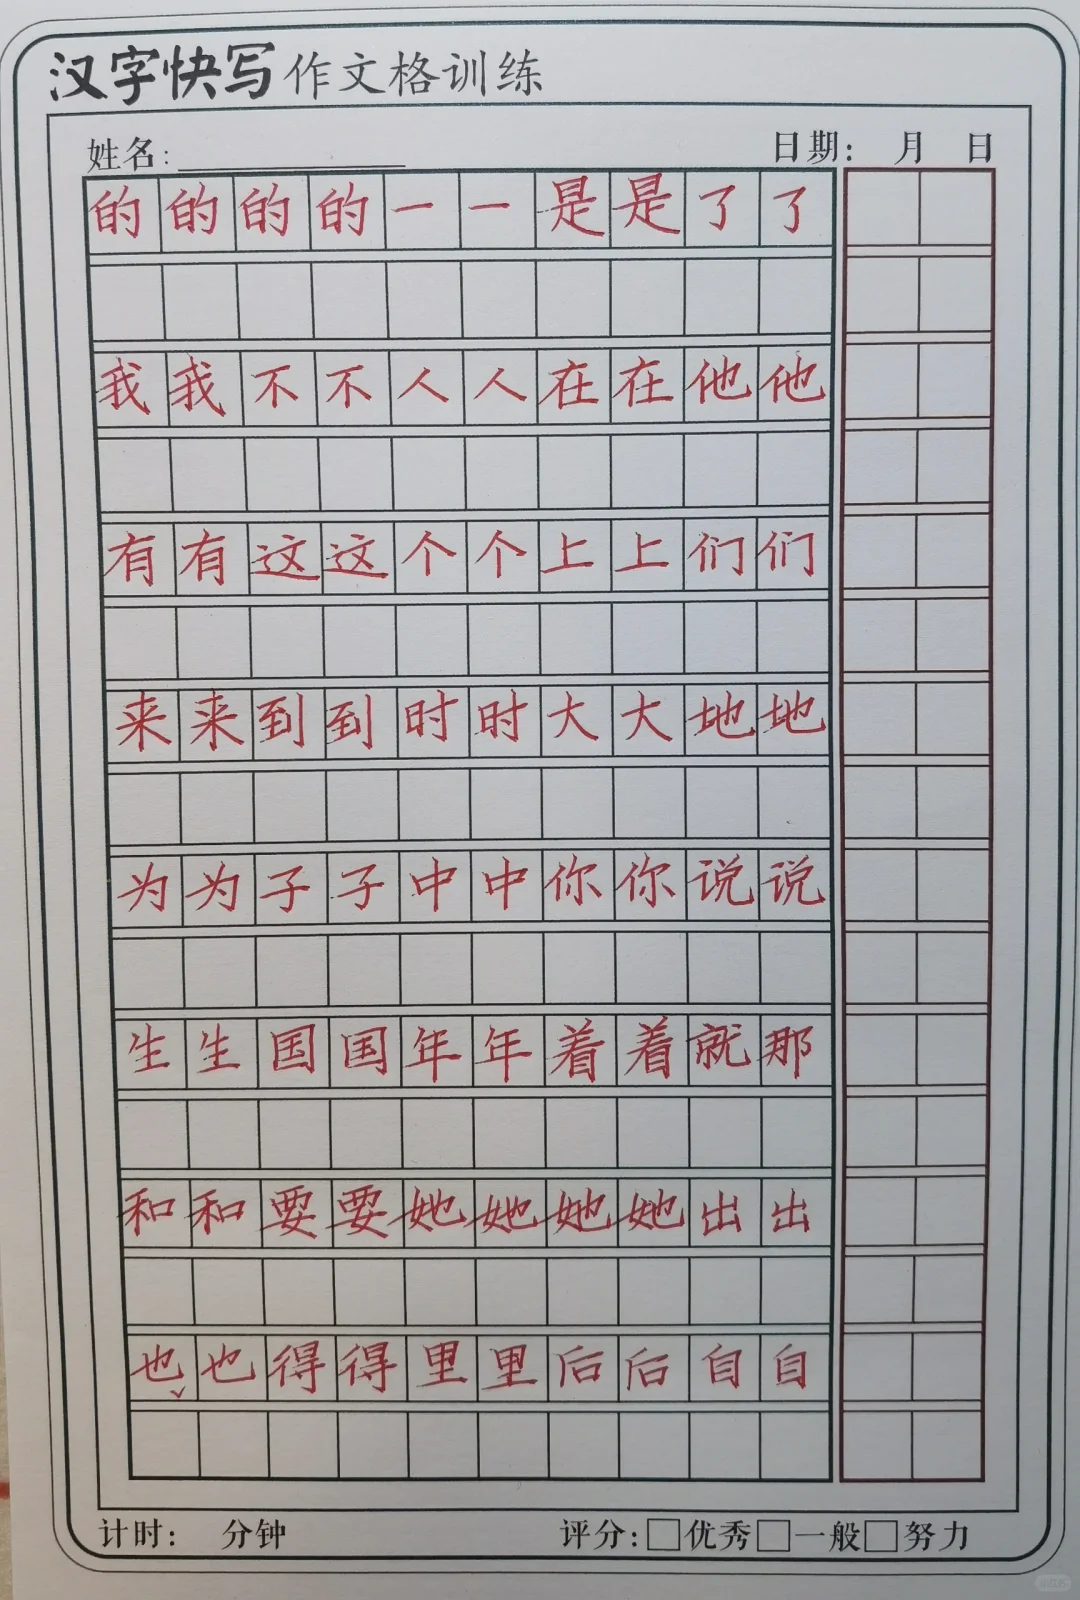 汉字快写作文格训练
姓名: 日期: 月 日
的的的的一一是是了了
我我不不人人在在他他
有有这这个个上上们们
来来到到时时大大地地
为为子子中中你你说说
生生国国年年着着就那
和和要要她她她她出出
也也得得里里后后自自
计时: 分钟 评分:□优秀□一般□努力